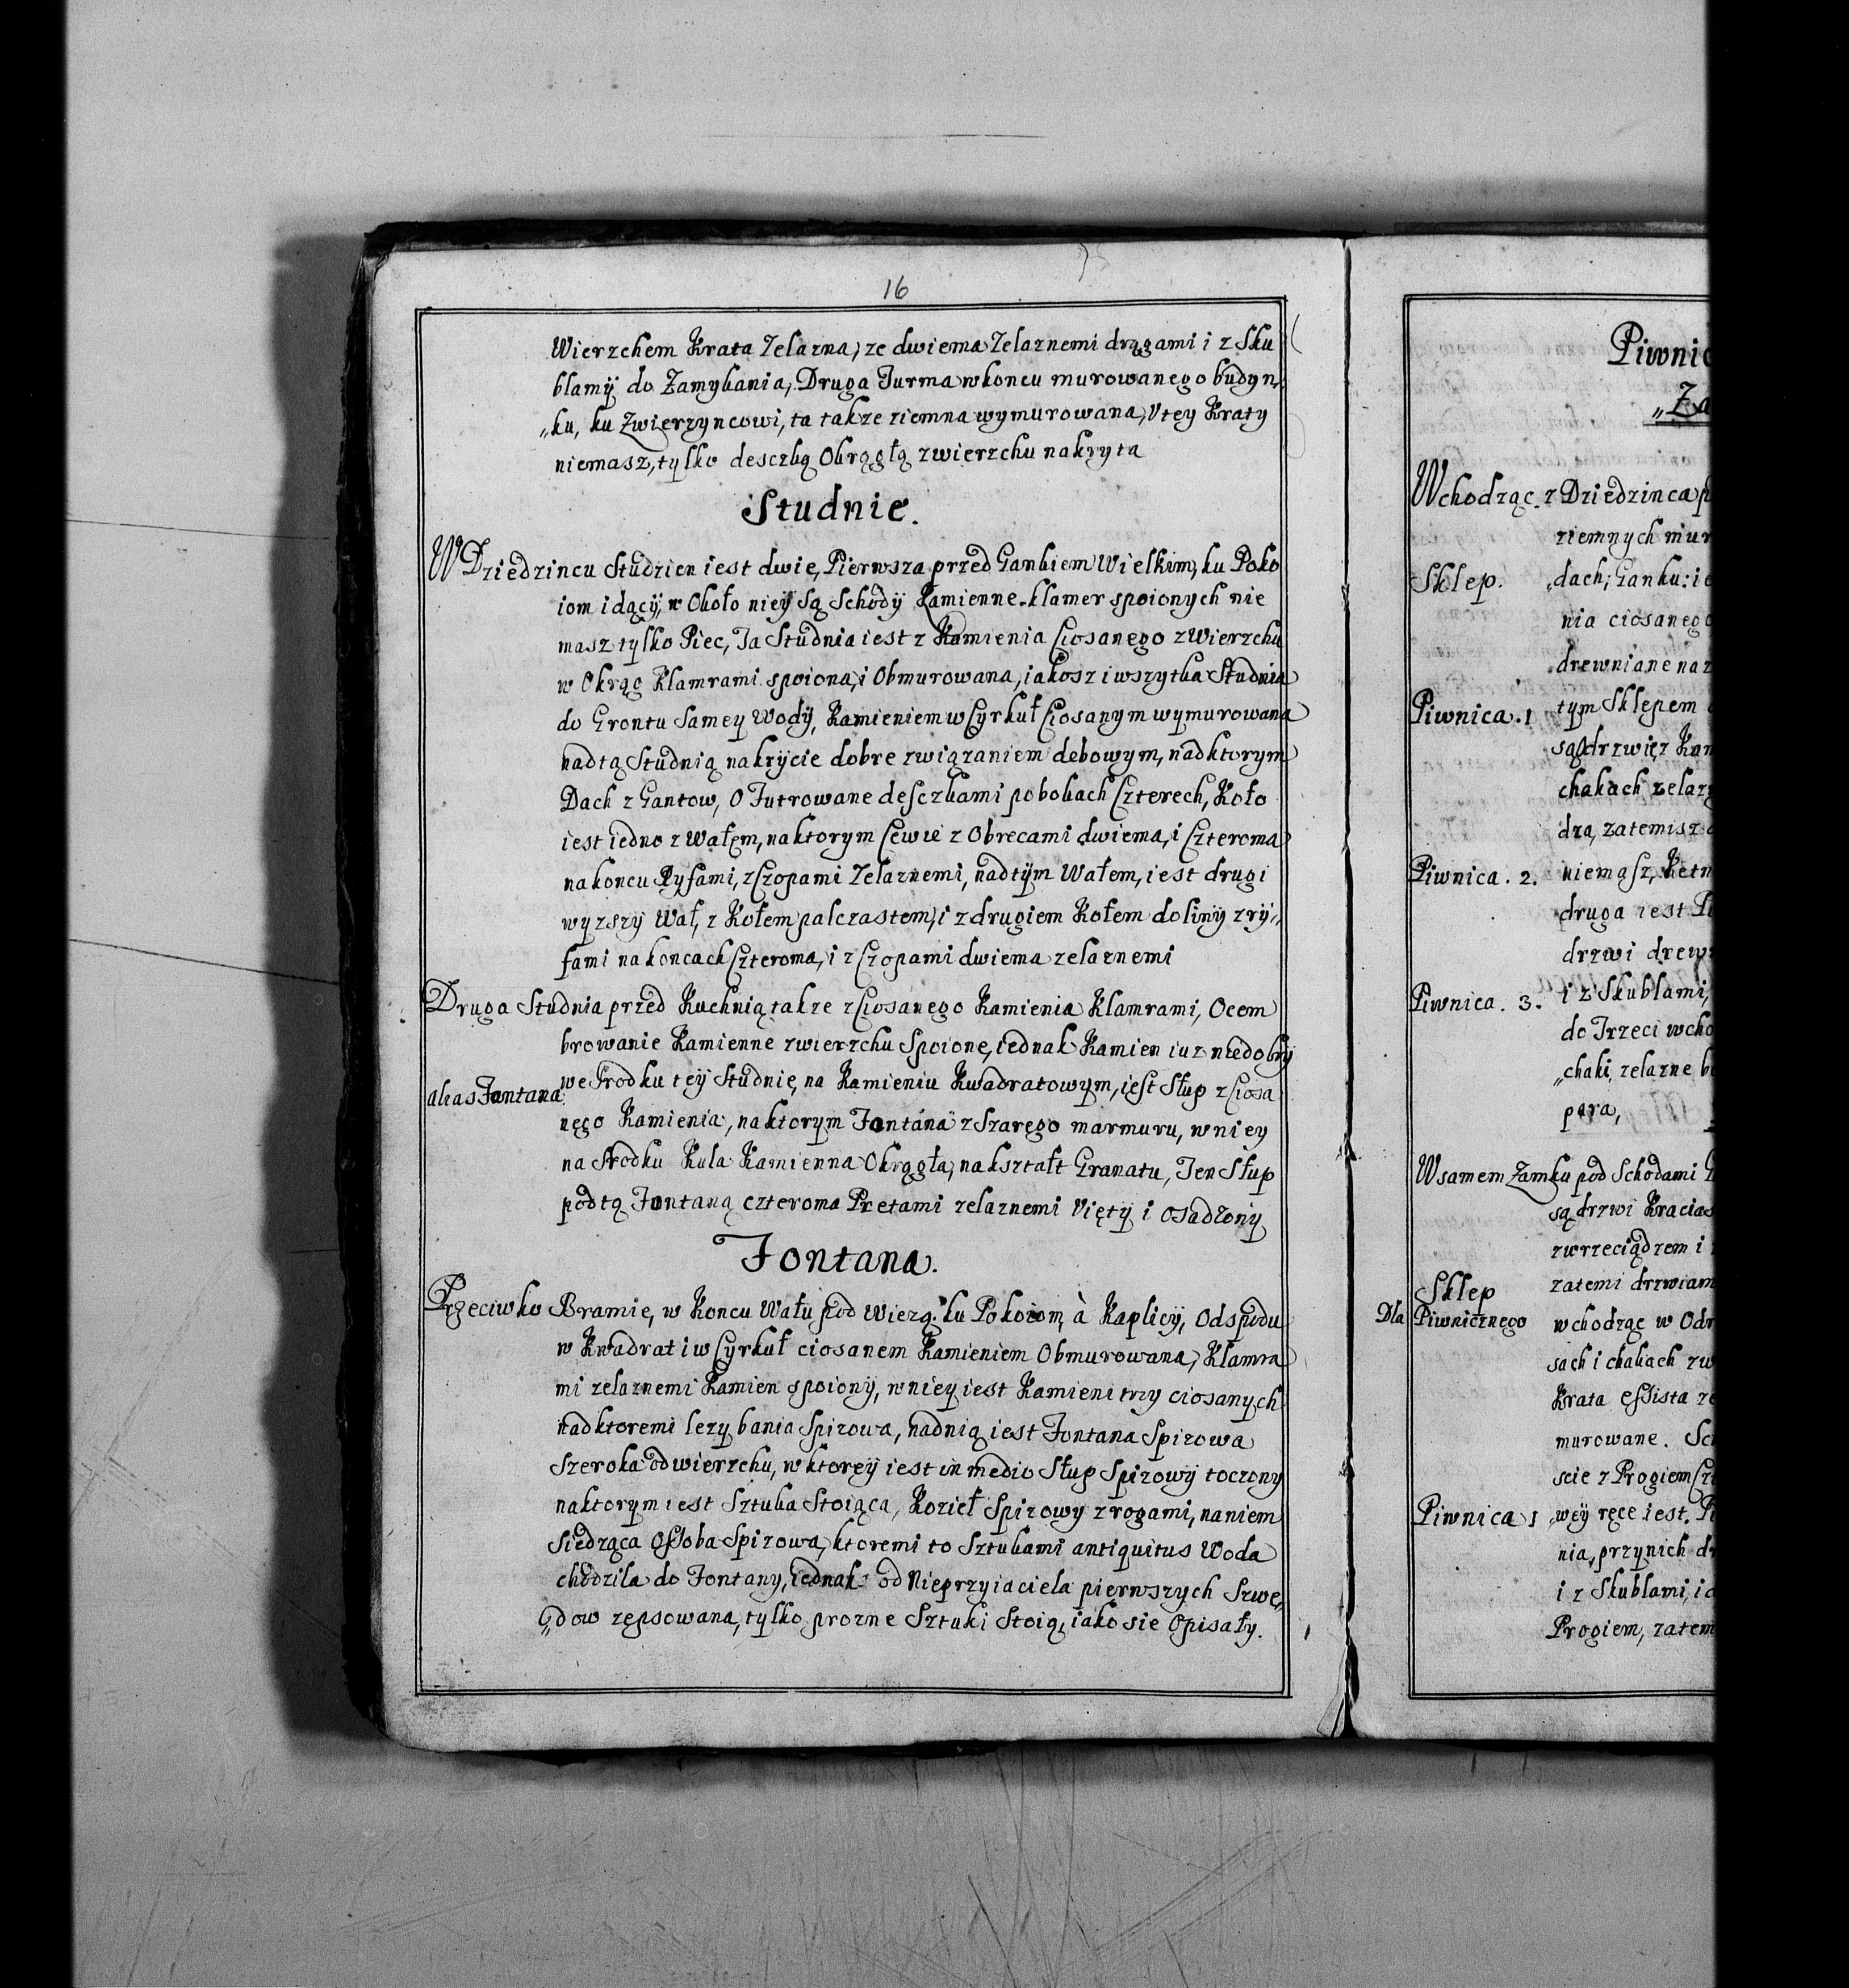 16
Wierzchem Krata Zelazna, ze dwiema Zelaznemi drągami i z Sku
blamÿ do Zamykania, Druga Turma w koncu murowanego budyn„
„ku, ku Zwierzyncowi, ta takze ziemna wymurowana, Utey Kraty
niemasz, tylko desczką Okrągłą zwierzchu nakryta
Studnie.
W Dziedzincu Studzien iest dwie, Pierwsza przed Gankiem Wielkim, ku Poko
iom idącÿ, w Około nieÿ Są Schodÿ Kamienne. klamer spoionych nie
masz tylko Piec, Ta Studnia iest z Kamienia Ciosanego z Wierzchu
w Okrąg Klamrami spoiona, i Obmurowana, iakosz i wszytka Studnia
do Grontu Samey Wodÿ, Kamieniem w Cyrkuł Ciosanym wymurowana
nad tą Studnią nakrÿcie dobre związaniem debowym, nad ktorym
Dach z Gantow, O Futrowane desczkami po bokach Czterech, Koło
iest iedno z Wałem, na ktorym Cewie z Obrecami dwiema, i Czteroma
na koncu Ryfami, z Czopami Zelaznemi, nad tÿm Wałem, iest drugi
wyzszÿ Wał, z Kołem palczastem, i z drugiem Kołem do linÿ z rÿ„
fami na koncach Czteroma, i z Czopami dwiema zelaznemi
Druga Studnia przed Kuchnią takze z Ciosanego Kamienia Klamrami, Ocem
browanie Kamienne zwierzchu Spoione, iednak Kamien iuz niedobrÿ
alias Fontana we Srodku teÿ Studnie, na Kamieniu Kwadratowym, iest Słup z Ciosa
nego Kamienia, na ktorym Fontána z Szarego marmuru, w niey
na Srodku Kula Kamienna Okrągła, na kształt Granatu, Ten Słup
pod tą Fontaną czteroma Pretami zelaznemi Uiętÿ i osadzonÿ
Fontana.
Przeciwko Bramie, w Koncu Wału pod Wiezą. ku Pokoiom, à Kaplicÿ, Od spodu
w Kwadrat i w Cyrkuł ciosanem Kamieniem Obmurowana, Klamra
mi zelaznemi Kamien spoionÿ, w nieÿ iest Kamieni trzy ciosanych
nad ktoremi lezy bania Spizowa, nad nią iest Fontana Spizowa
Szeroka od wierzchu, w ktoreÿ iest in medio Słup Spizowÿ toczony
na ktorym iest Sztuka Stoiąca, Kozieł Spizowy z rogami, na niem
Siedząca Osoba Spizowa, ktoremi to Sztukami antiquitus Woda
chodzila do Fontany, iednak od Nieprzyiaciela pierwszych Szwe„
„dow zepsowana, tylko prozne Sztuki Stoią, iako sie Opisały.
Piwnic
„Za
Wchodząc z Dziedzinca p
ziemnych mur
Sklep. „dach, Ganku: ie
nia ciosanego
drewniane na z
Piwnica. 1 tym Sklepem
są drzwi, z Kam
chakach zelaz
dza, zatemi sz
Piwnica. 2. niemasz, Ketn
druga iest Pi
drzwi drew
Piwnica. 3. i z Skublami,
do Trzeci wcho
„chaki, zelazne
para,
W samem Zamku pod Schodami
są drzwi Kracias
z wrzeciądzem i
Sklep zatemi drzwiam
Dla Piwnicznego wchodząc w Odr
sach i chakach zw
Krata Essista ze
murowane. Sc
scie z Progiem Cz
Piwnica 1 „weÿ ręce iest, Pi
nia, przy nich d
i z Skublami, i
Progiem, zatem